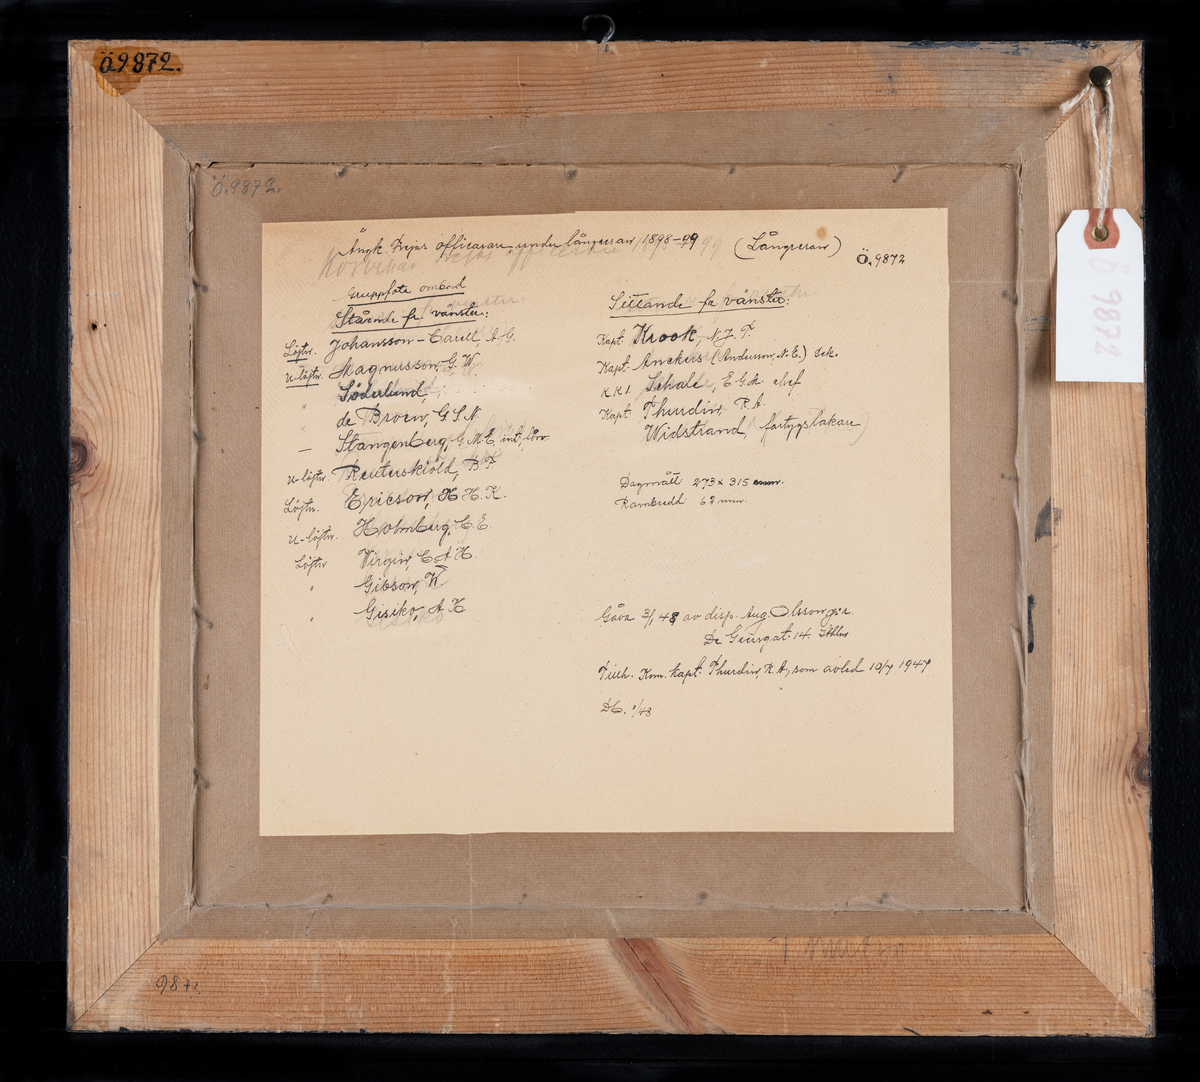 Ö.9872.
Ö.9872.
Ö 9872
Ångk. Frejas officerare under långresan 1898-99 (Långresan)
Ö.9872
Gruppfoto ombord
Stående fr. vänster:
Löjtn. Johansson-Carell, A.G.
U-löjtn. Magnusson, G.W.
" Söderlund,
" de Broen, G.S.N.
— Stangenberg, G.M.E. int.
U-löjtn. Reuterskiöld, B.F.
Löjtn. Ericson, H.H.K.
U-löjtn. Holmberg, C.E.
Löjtn Virgin, C.A.H.
" Gibson, W
" Gisiko, A K
Sittande fr vänster:
Kapt Krook, N.J.F.
Kapt. Anckers (Andersson, N.E.) sek.
KK1 Schale, E G A chef
Kapt Thurdin, R.A.
Widstrand, fartygsläkare
Dagmått 273 x 315 mm.
Rambredd 62 mm.
Gåva 3/1 48 av disp. Aug. Olsson
De Geersgat. 14. Sthlm
Tillh. Kom. kapt. Thurdin, R.A, som avled 10/7 1947
1/48
987